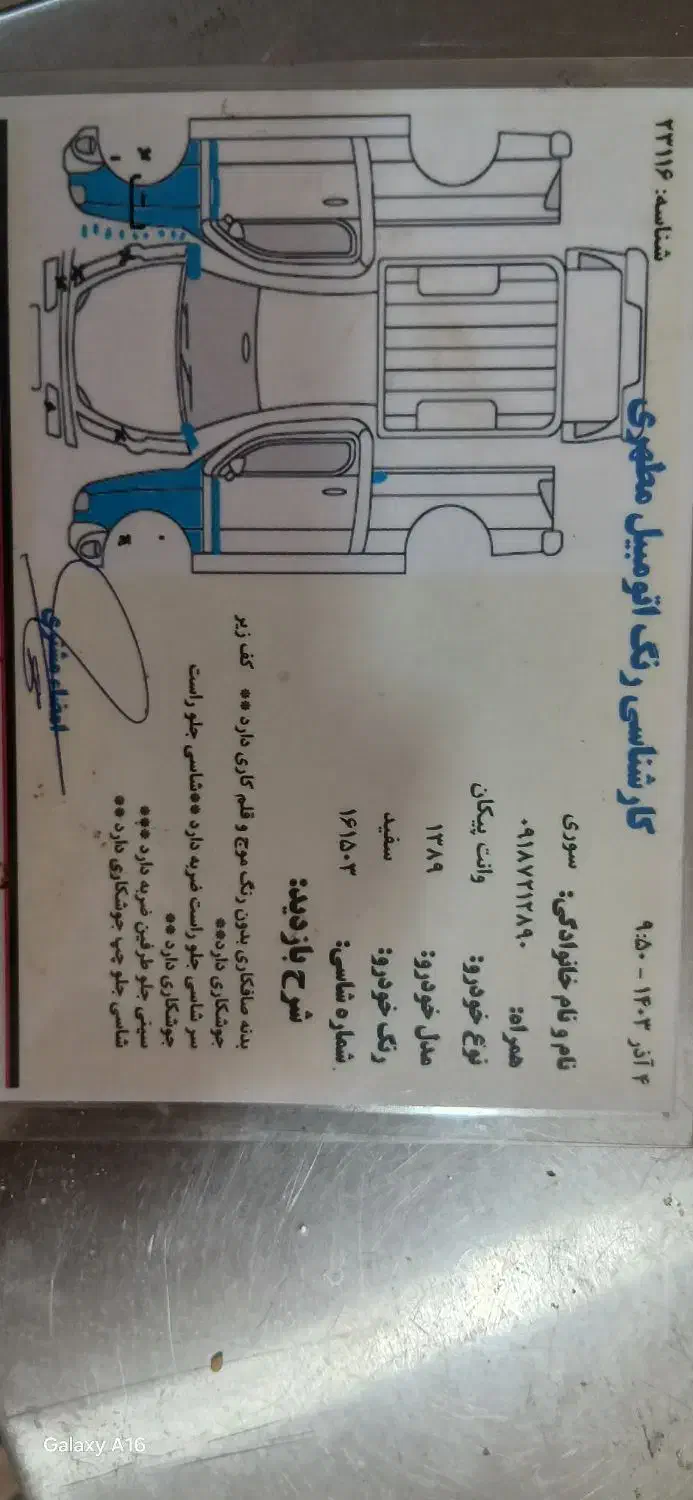 شناسه: ۲۳۱۱۶
کارشناسی رنگ اتومبیل مطهری
۴ آذر ۱۴۰۳ - ۹:۵۰
نام و نام خانوادگی: سوری
همراه: ۰۹۱۸۷۲۱۲۸۹۰
نوع خودرو: وانت پیکان
مدل خودرو: ۱۳۸۹
رنگ خودرو: سفید
شماره شاسی: ۱۶۱۵۰۳
شرح بازدید:
بدنه صافکاری بدون رنگ موج و قلم کاری دارد ** کف زیر
جوشکاری دارد**
سر شاسی جلو راست ضربه دارد **شاسی جلو راست
جوشکاری دارد **
سینی جلو طرفین ضربه دارد ***
شاسی جلو چپ جوشکاری دارد **
امضاء مشتری
Galaxy A16